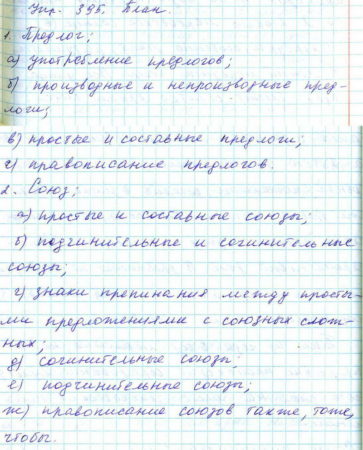 Упр. 395. План.
1. Предлог;
а) употребление предлогов;
б) производные и непроизводные пред-
логи;
в) простые и составные предлоги;
г) правописание предлогов.
2. Союз;
а) простые и составные союзы;
б) подчинительные и сочинительные
союзы;
г) знаки препинания между просты-
ми предложениями с союзных слож-
ных;
д) сочинительные союзы;
е) подчинительные союзы;
ж) правописание союзов также, тоже,
чтобы.